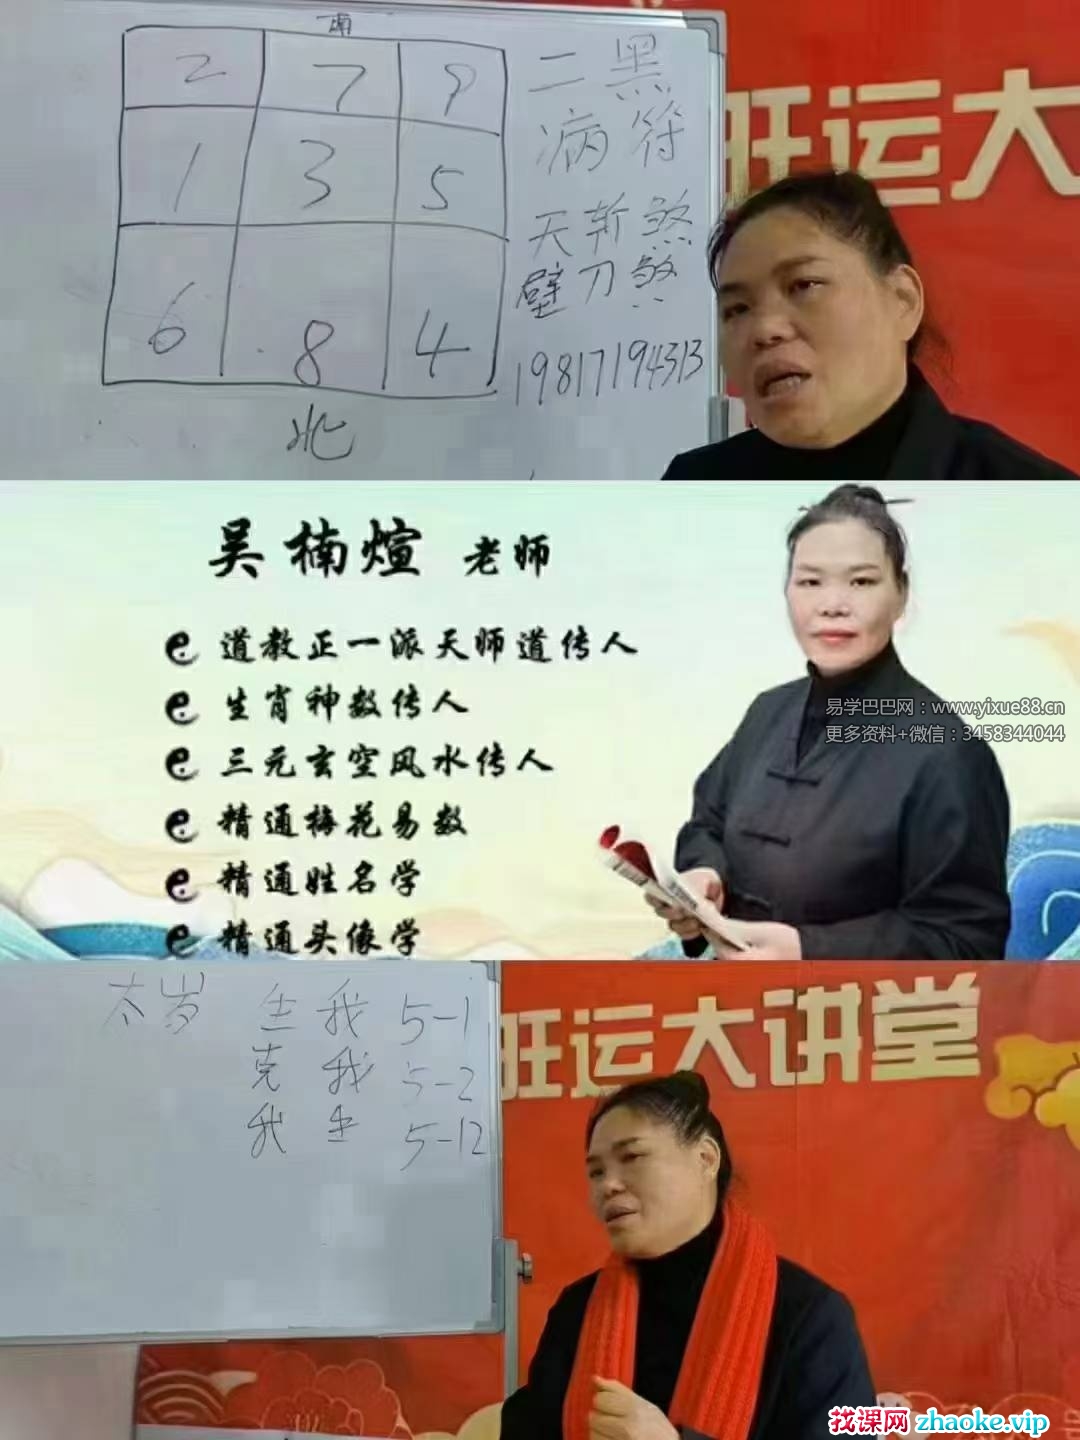 南
2 7 9
1 3 5
6 8 4
北
二黑
病符
天斩煞
壁刀煞
19817194313
旺运大
吴楠煊 老师
道教正一派天师道传人
生肖神数传人
三元玄空风水传人
精通梅花易数
精通姓名学
精通头像学
易学巴巴网：www.yixue88.cn
更多资料+微信：3458344044
太岁 生我 5-1
克我 5-2
我生 5-12
旺运大讲堂
找课网 zhaoke.vip